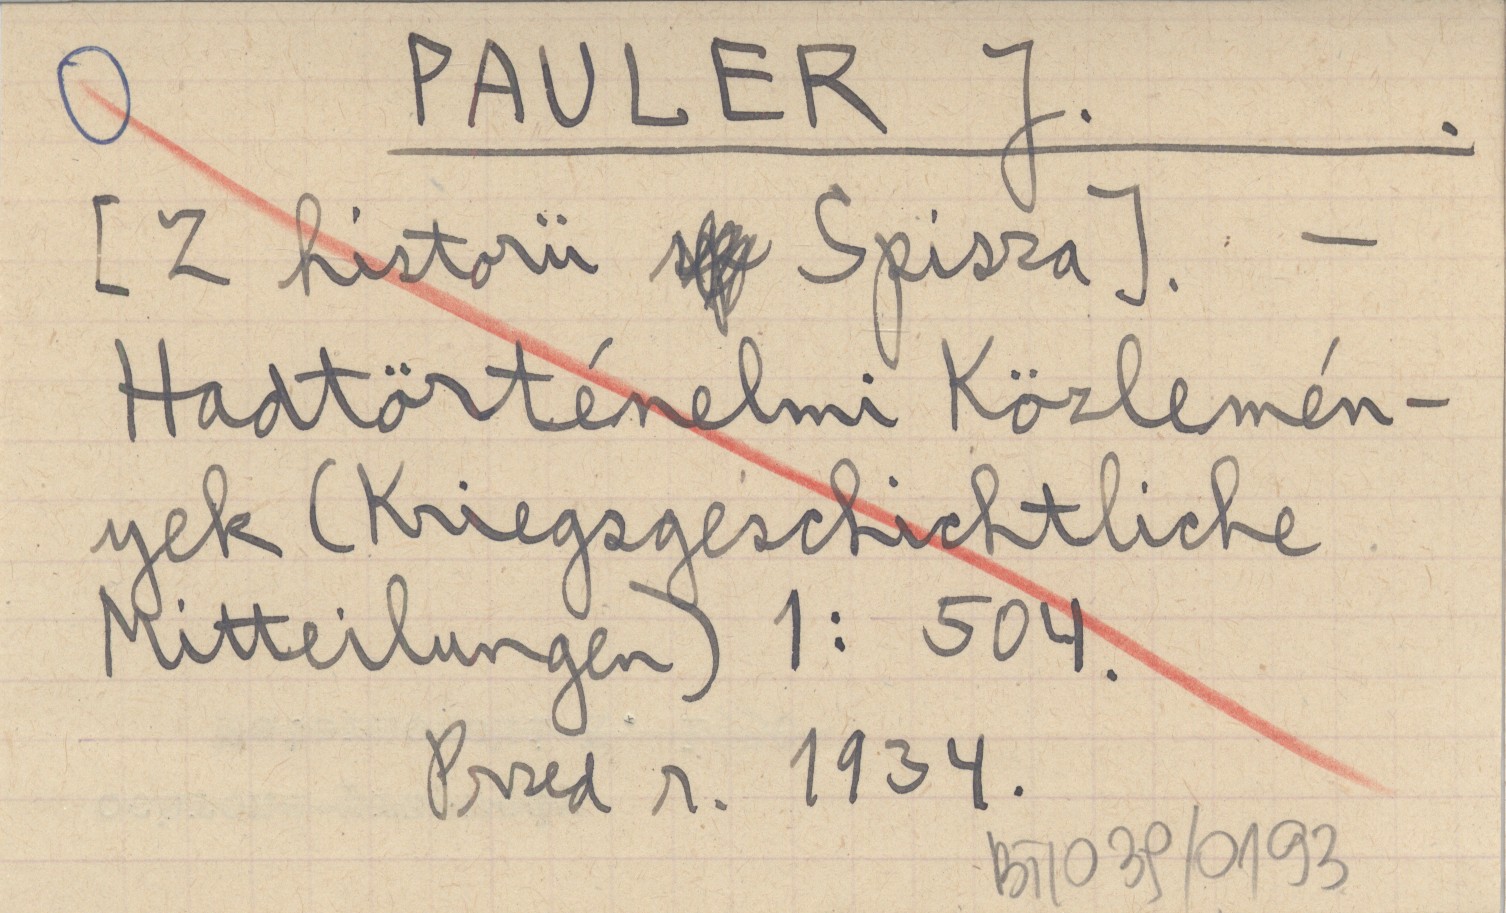 PAULER J.
[Z historii Spisza]. —
Hadtörténelmi Közlemén-
yek (Kriegsgeschichtliche
Mitteilungen) 1: 504.
Przed r. 1934.
/0193